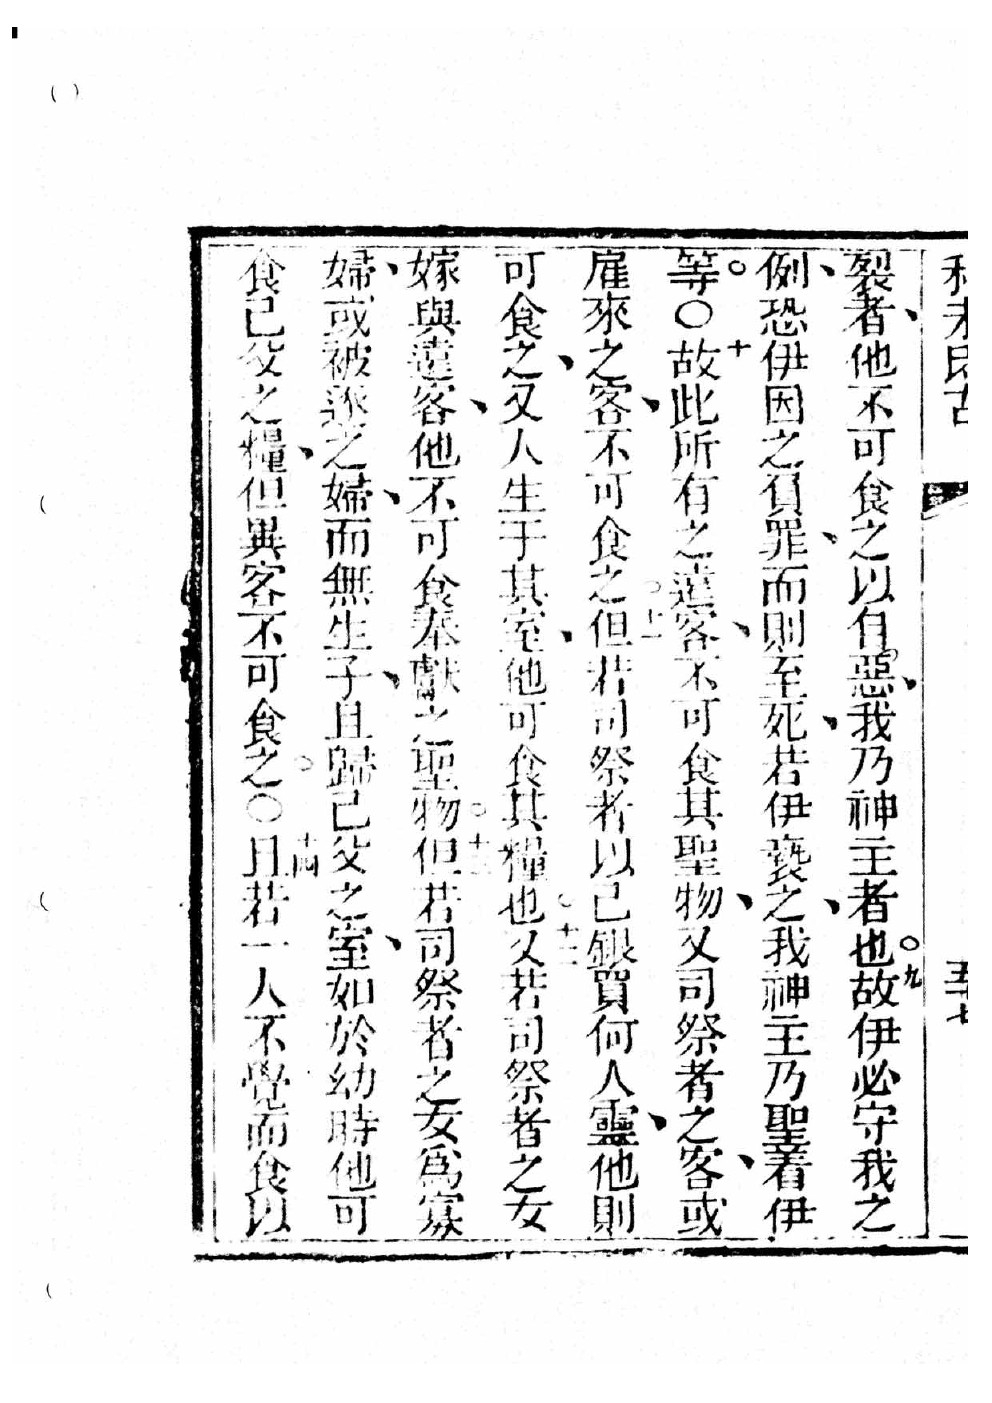 利未氏古
五十七
裂者、他不可食之以自惡、我乃神主者也。九故伊必守我之
例、恐伊因之負罪、而則至死、若伊褻之、我神主乃聖着伊
等。〇十故此所有之遠客、不可食其聖物、又司祭者之客、或
雇來之客、不可食之。十一但若司祭者以己銀買何人靈、他則
可食之、又人生于其室、他可食其糧也。十二又若司祭者之女
嫁與遠客、他不可食奉獻之聖物。十三但若司祭者之女爲寡
婦、或被逐之婦、而無生子、且歸己父之室、如於幼時、他可
食己父之糧、但異客不可食之。〇十四且若一人不覺而食以